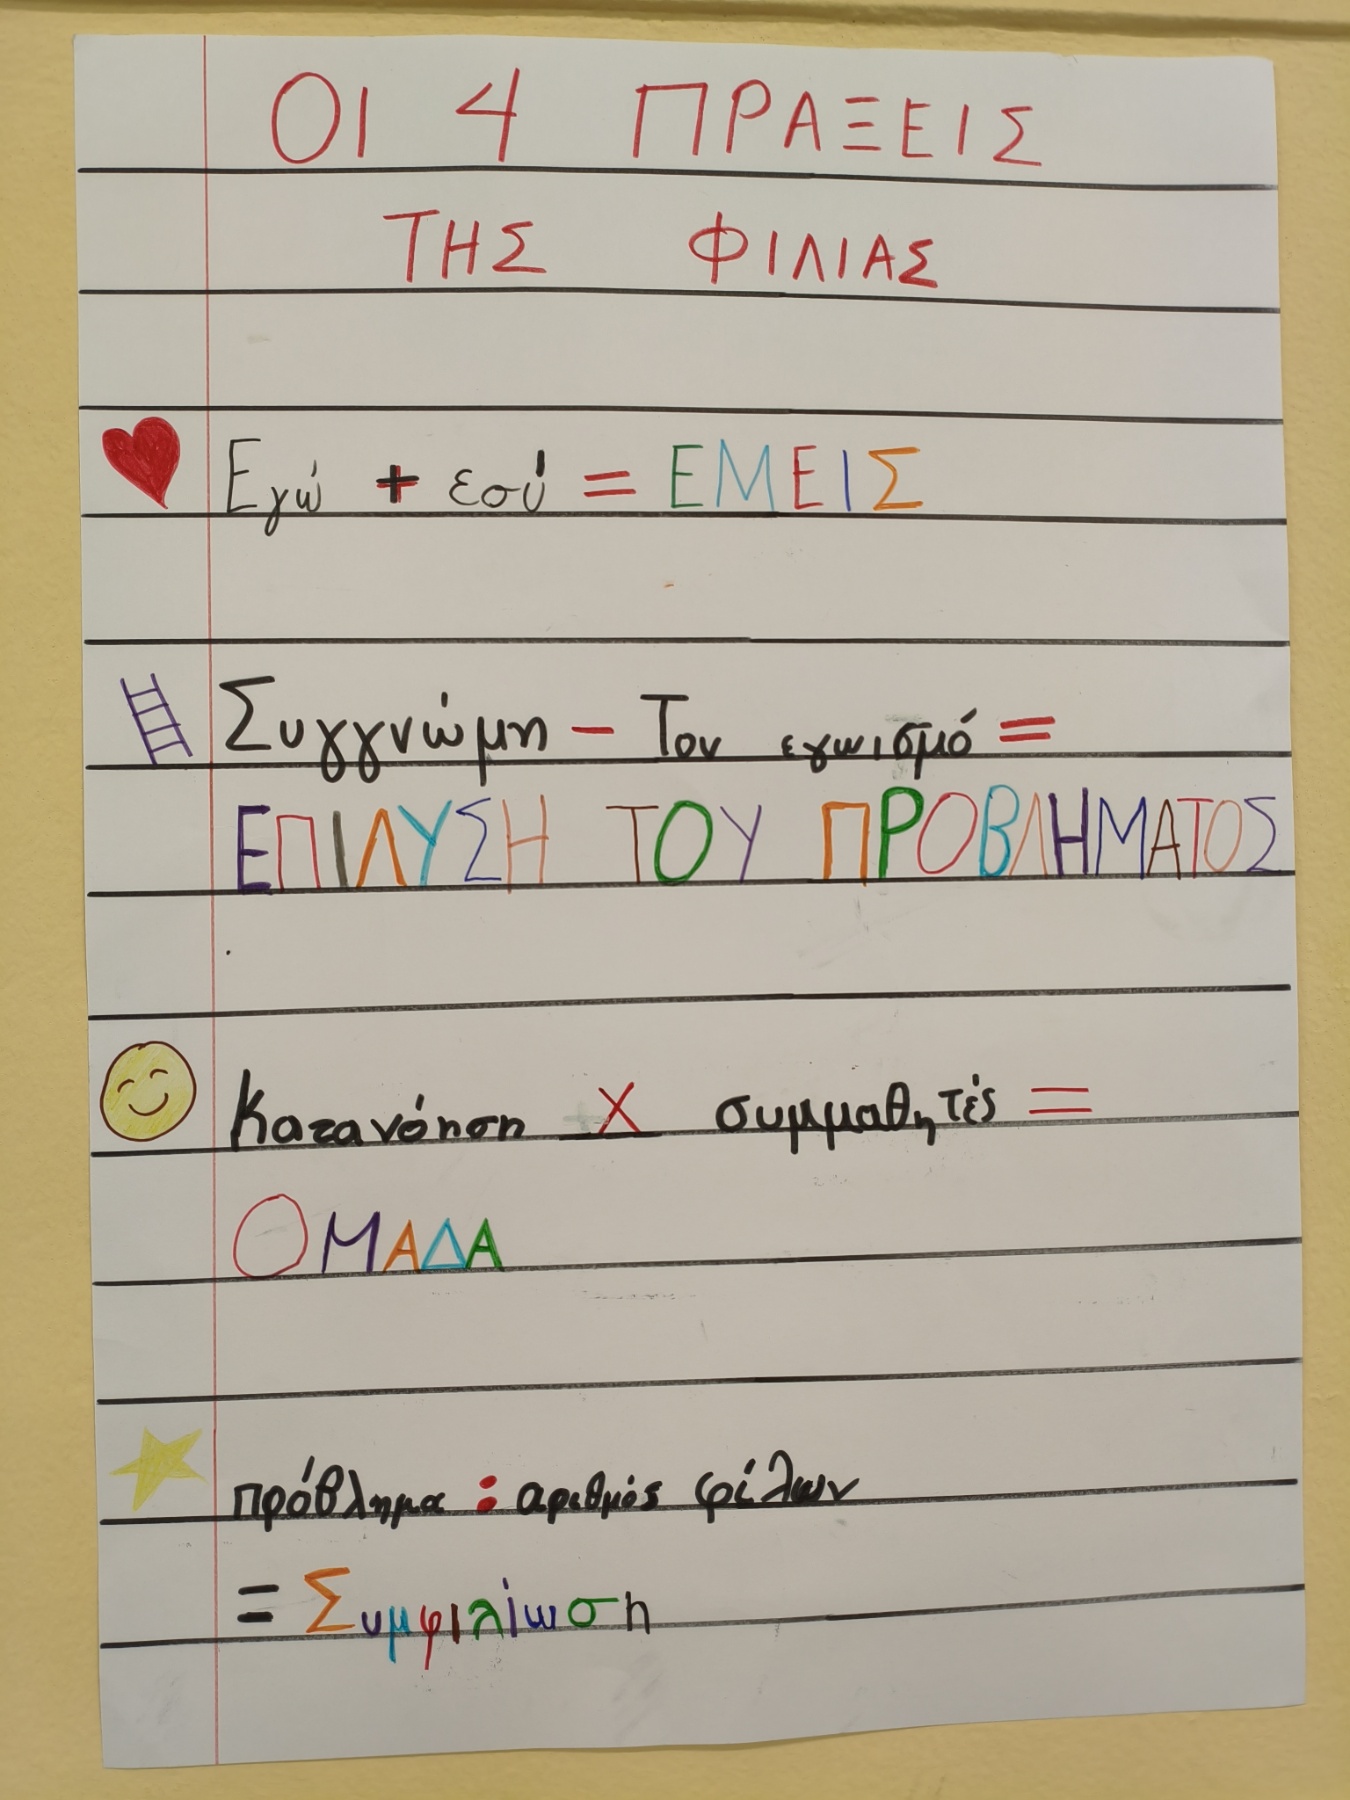 ΟΙ 4 ΠΡΑΞΕΙΣ
ΤΗΣ ΦΙΛΙΑΣ
Εγώ + εσύ = ΕΜΕΙΣ
Συγγνώμη - Τον εγωισμό =
ΕΠΙΛΥΣΗ ΤΟΥ ΠΡΟΒΛΗΜΑΤΟΣ
Κατανόηση X συμμαθητές =
ΟΜΑΔΑ
πρόβλημα : αριθμός φίλων
= Συμφιλίωση